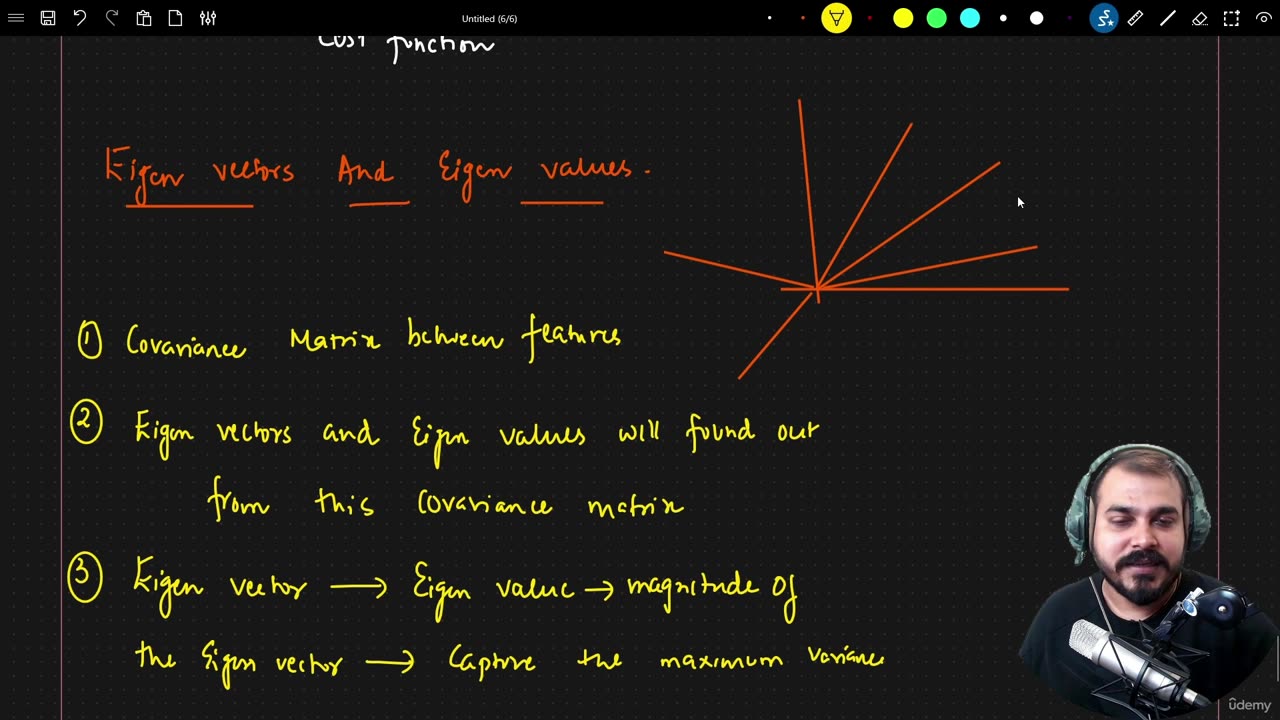 Untitled (6/6)
Cost function
Eigen vectors And Eigen values.
① Covariance Matrix between features
② Eigen vectors and Eigen values will found out
from this covariance matrix
③ Eigen vector → Eigen value → magnitude of
the Eigen vector → Capture the maximum variance
ûdemy